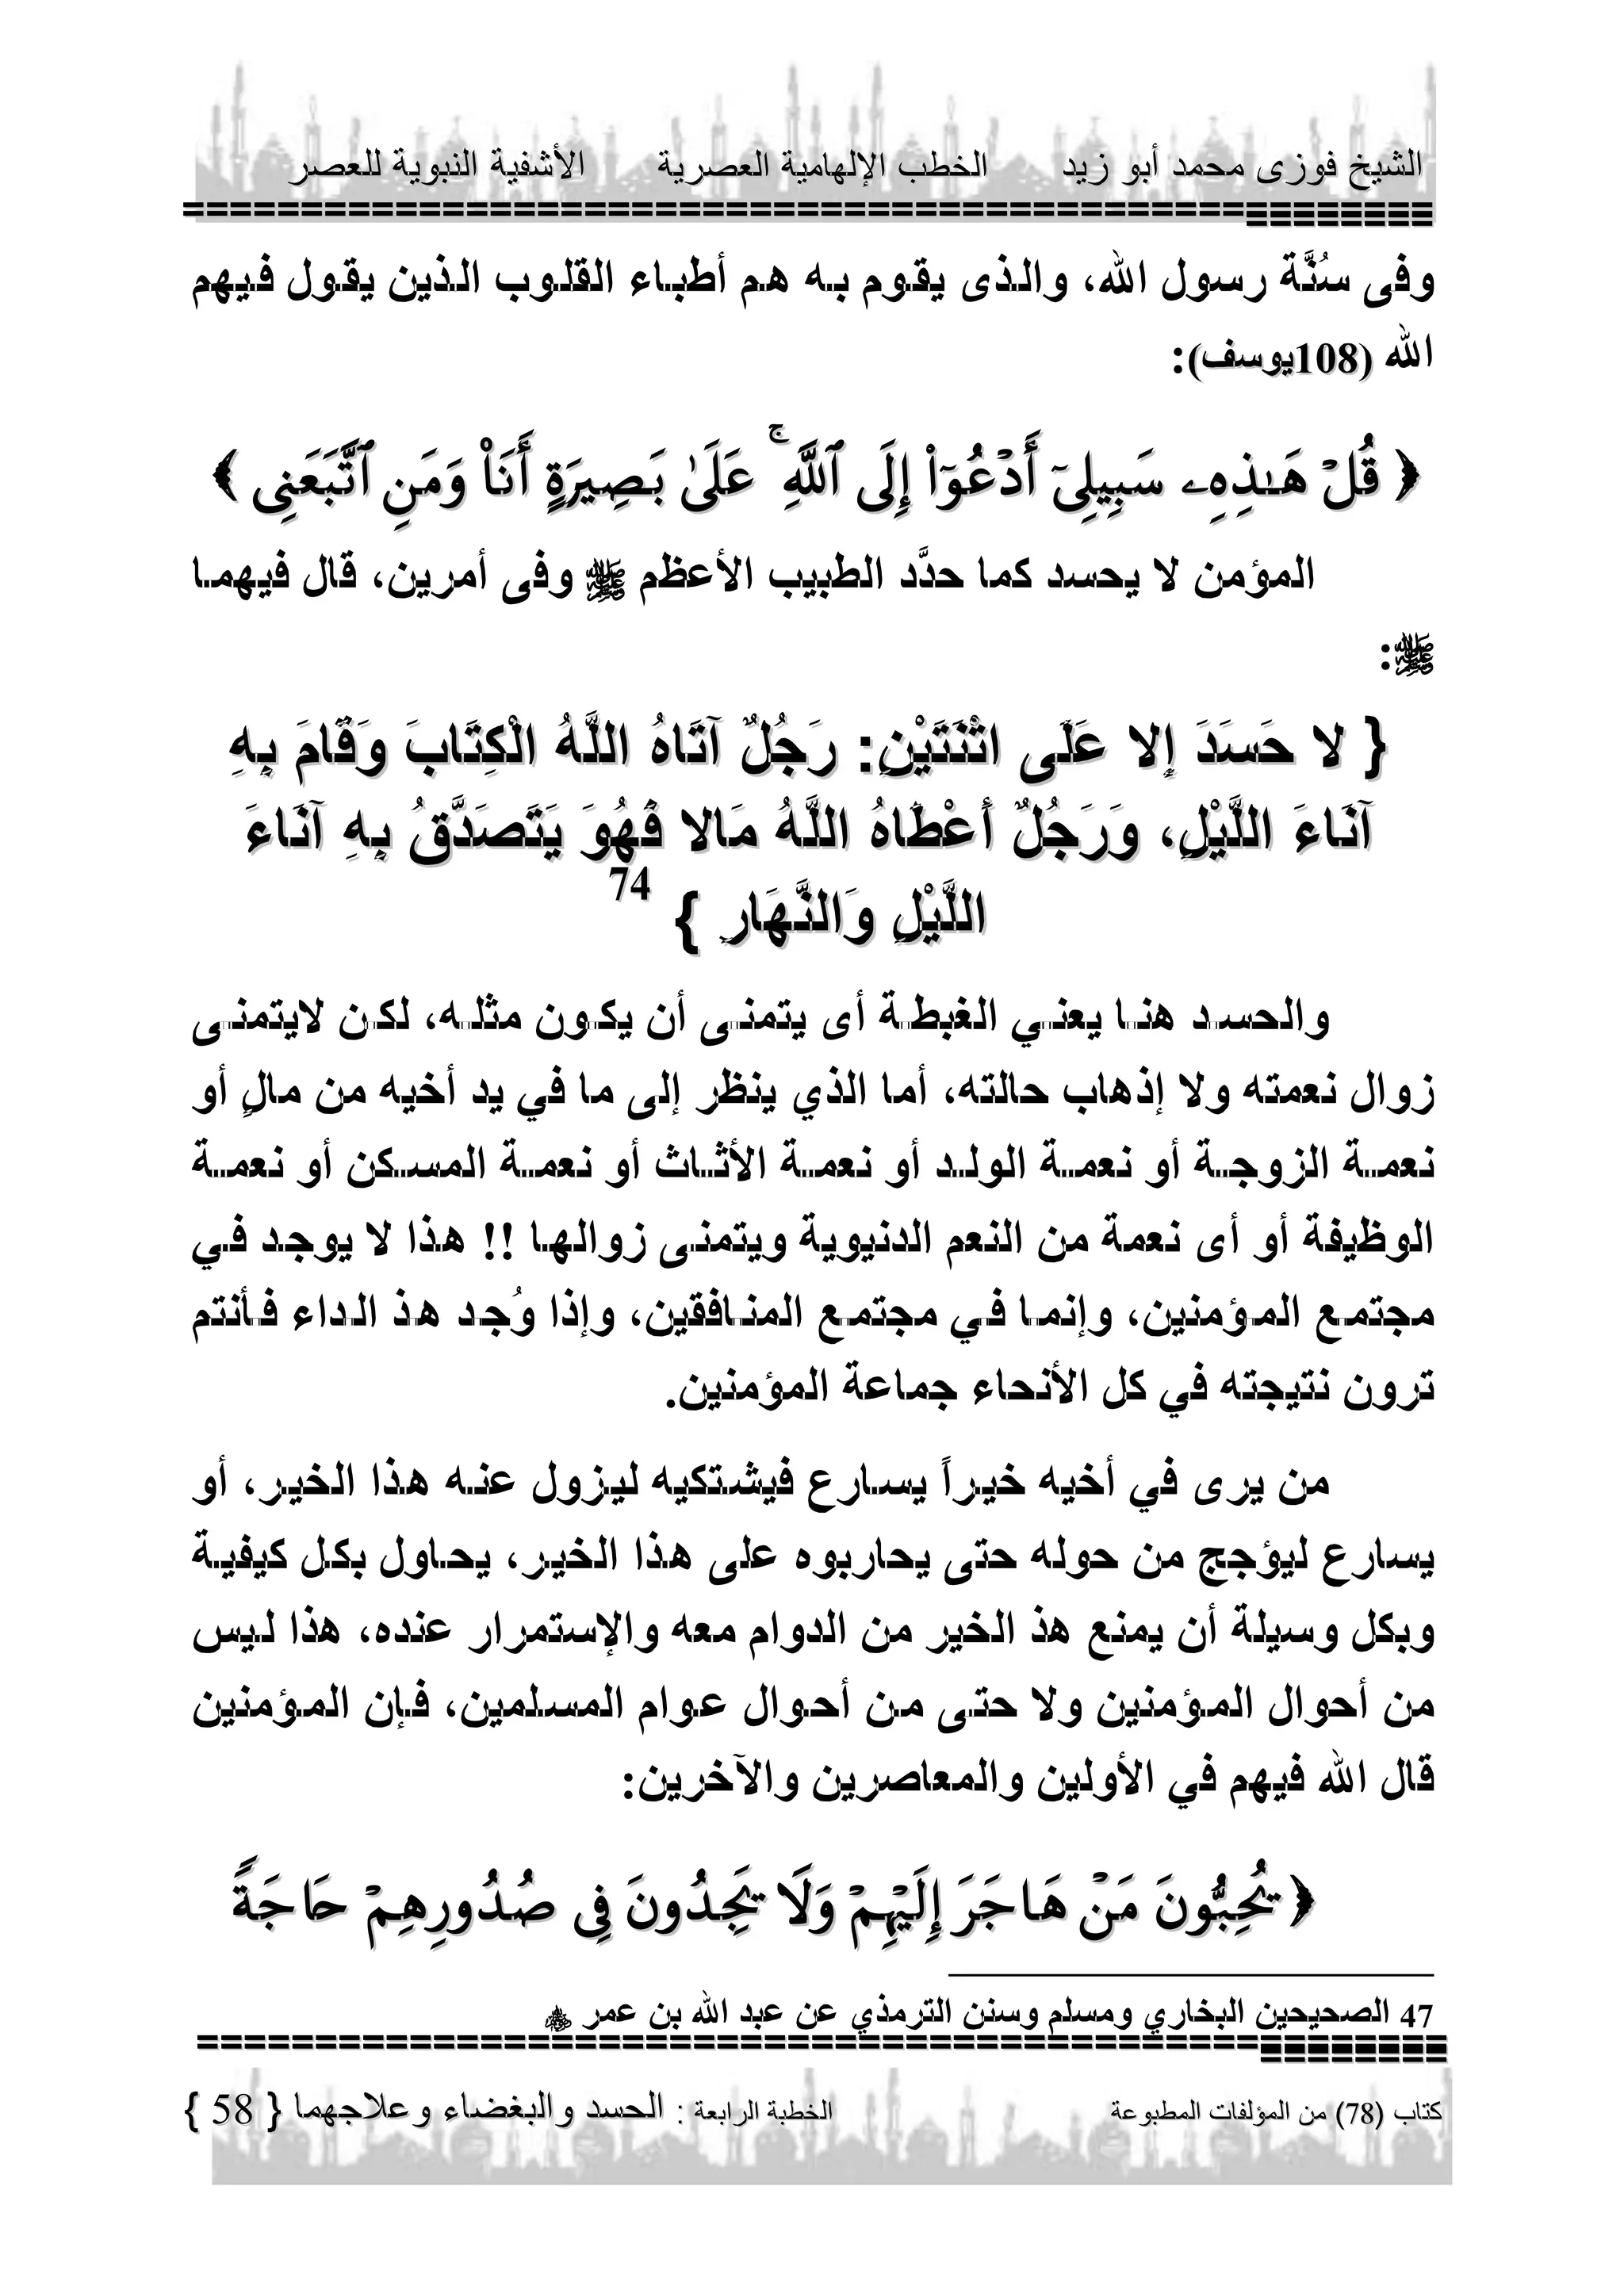 الشيخ فوزى محمد أبو زيد الخطب الإلهامية العصرية الأشفية النبوية للعصر
وفى سُنَّة رسول الله، والذى يقوم به هم أطباء القلوب الذين يقول فيهم
الله (108يوسف):
﴿ قُلْ هَـٰذِهِۦ سَبِيلِىٓ أَدْعُوٓا۟ إِلَى ٱللَّهِ ۚ عَلَىٰ بَصِيرَةٍ أَنَا۠ وَمَنِ ٱتَّبَعَنِى ﴾
المؤمن لا يحسد كما حدَّد الطبيب الأعظم ﷺ وفى أمرين، قال فيهما
ﷺ:
{ لا حَسَدَ إِلا عَلَى اثْنَتَيْنِ: رَجُلٌ آتَاهُ اللَّهُ الْكِتَابَ وَقَامَ بِهِ
آنَاءَ اللَّيْلِ، وَرَجُلٌ أَعْطَاهُ اللَّهُ مَالا فَهُوَ يَتَصَدَّقُ بِهِ آنَاءَ
اللَّيْلِ وَالنَّهَارِ } 74
والحسد هنا يعني الغبطة أى يتمنى أن يكون مثله، لكن لايتمنى
زوال نعمته ولا إذهاب حالته، أما الذي ينظر إلى ما في يد أخيه من مالٍ أو
نعمة الزوجة أو نعمة الولد أو نعمة الأثاث أو نعمة المسكن أو نعمة
الوظيفة أو أى نعمة من النعم الدنيوية ويتمنى زوالها !! هذا لا يوجد في
مجتمع المؤمنين، وإنما في مجتمع المنافقين، وإذا وُجد هذ الداء فأنتم
ترون نتيجته في كل الأنحاء جماعة المؤمنين.
من يرى في أخيه خيراً يسارع فيشتكيه ليزول عنه هذا الخير، أو
يسارع ليؤجج من حوله حتى يحاربوه على هذا الخير، يحاول بكل كيفية
وبكل وسيلة أن يمنع هذ الخير من الدوام معه والإستمرار عنده، هذا ليس
من أحوال المؤمنين ولا حتى من أحوال عوام المسلمين، فإن المؤمنين
قال الله فيهم في الأولين والمعاصرين والآخرين:
﴿ يُحِبُّونَ مَنْ هَاجَرَ إِلَيْهِمْ وَلَا يَجِدُونَ فِى صُدُورِهِمْ حَاجَةً
47 الصحيحين البخاري ومسلم وسنن الترمذي عن عبد الله بن عمر
كتاب (78) من المؤلفات المطبوعة الخطبة الرابعة : الحسد والبغضاء وعلاجهما { 58 }